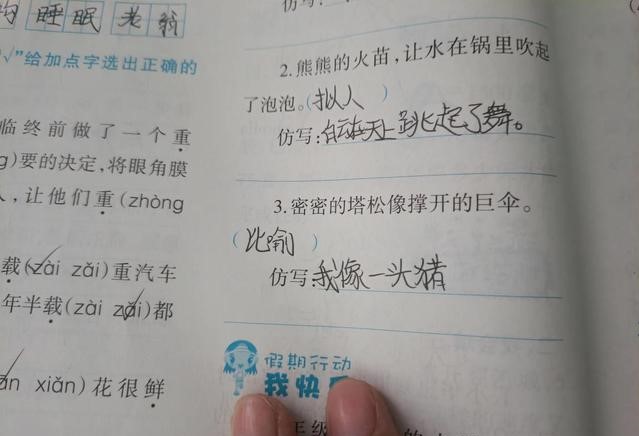 睡眠 老翁
√”给加点字选出正确的
临终前做了一个重
g)要的决定,将眼角膜
,让他们重(zhòng
载(zài zǎi)重汽车
年半载(zài zǎi)都
xiān xiǎn)花很鲜
仿写:
2.熊熊的火苗,让水在锅里吹起
了泡泡。(拟人)
仿写:白云在天上跳起了舞。
3.密密的塔松像撑开的巨伞。
(比喻)
仿写:我像一头猪
假期行动
我快